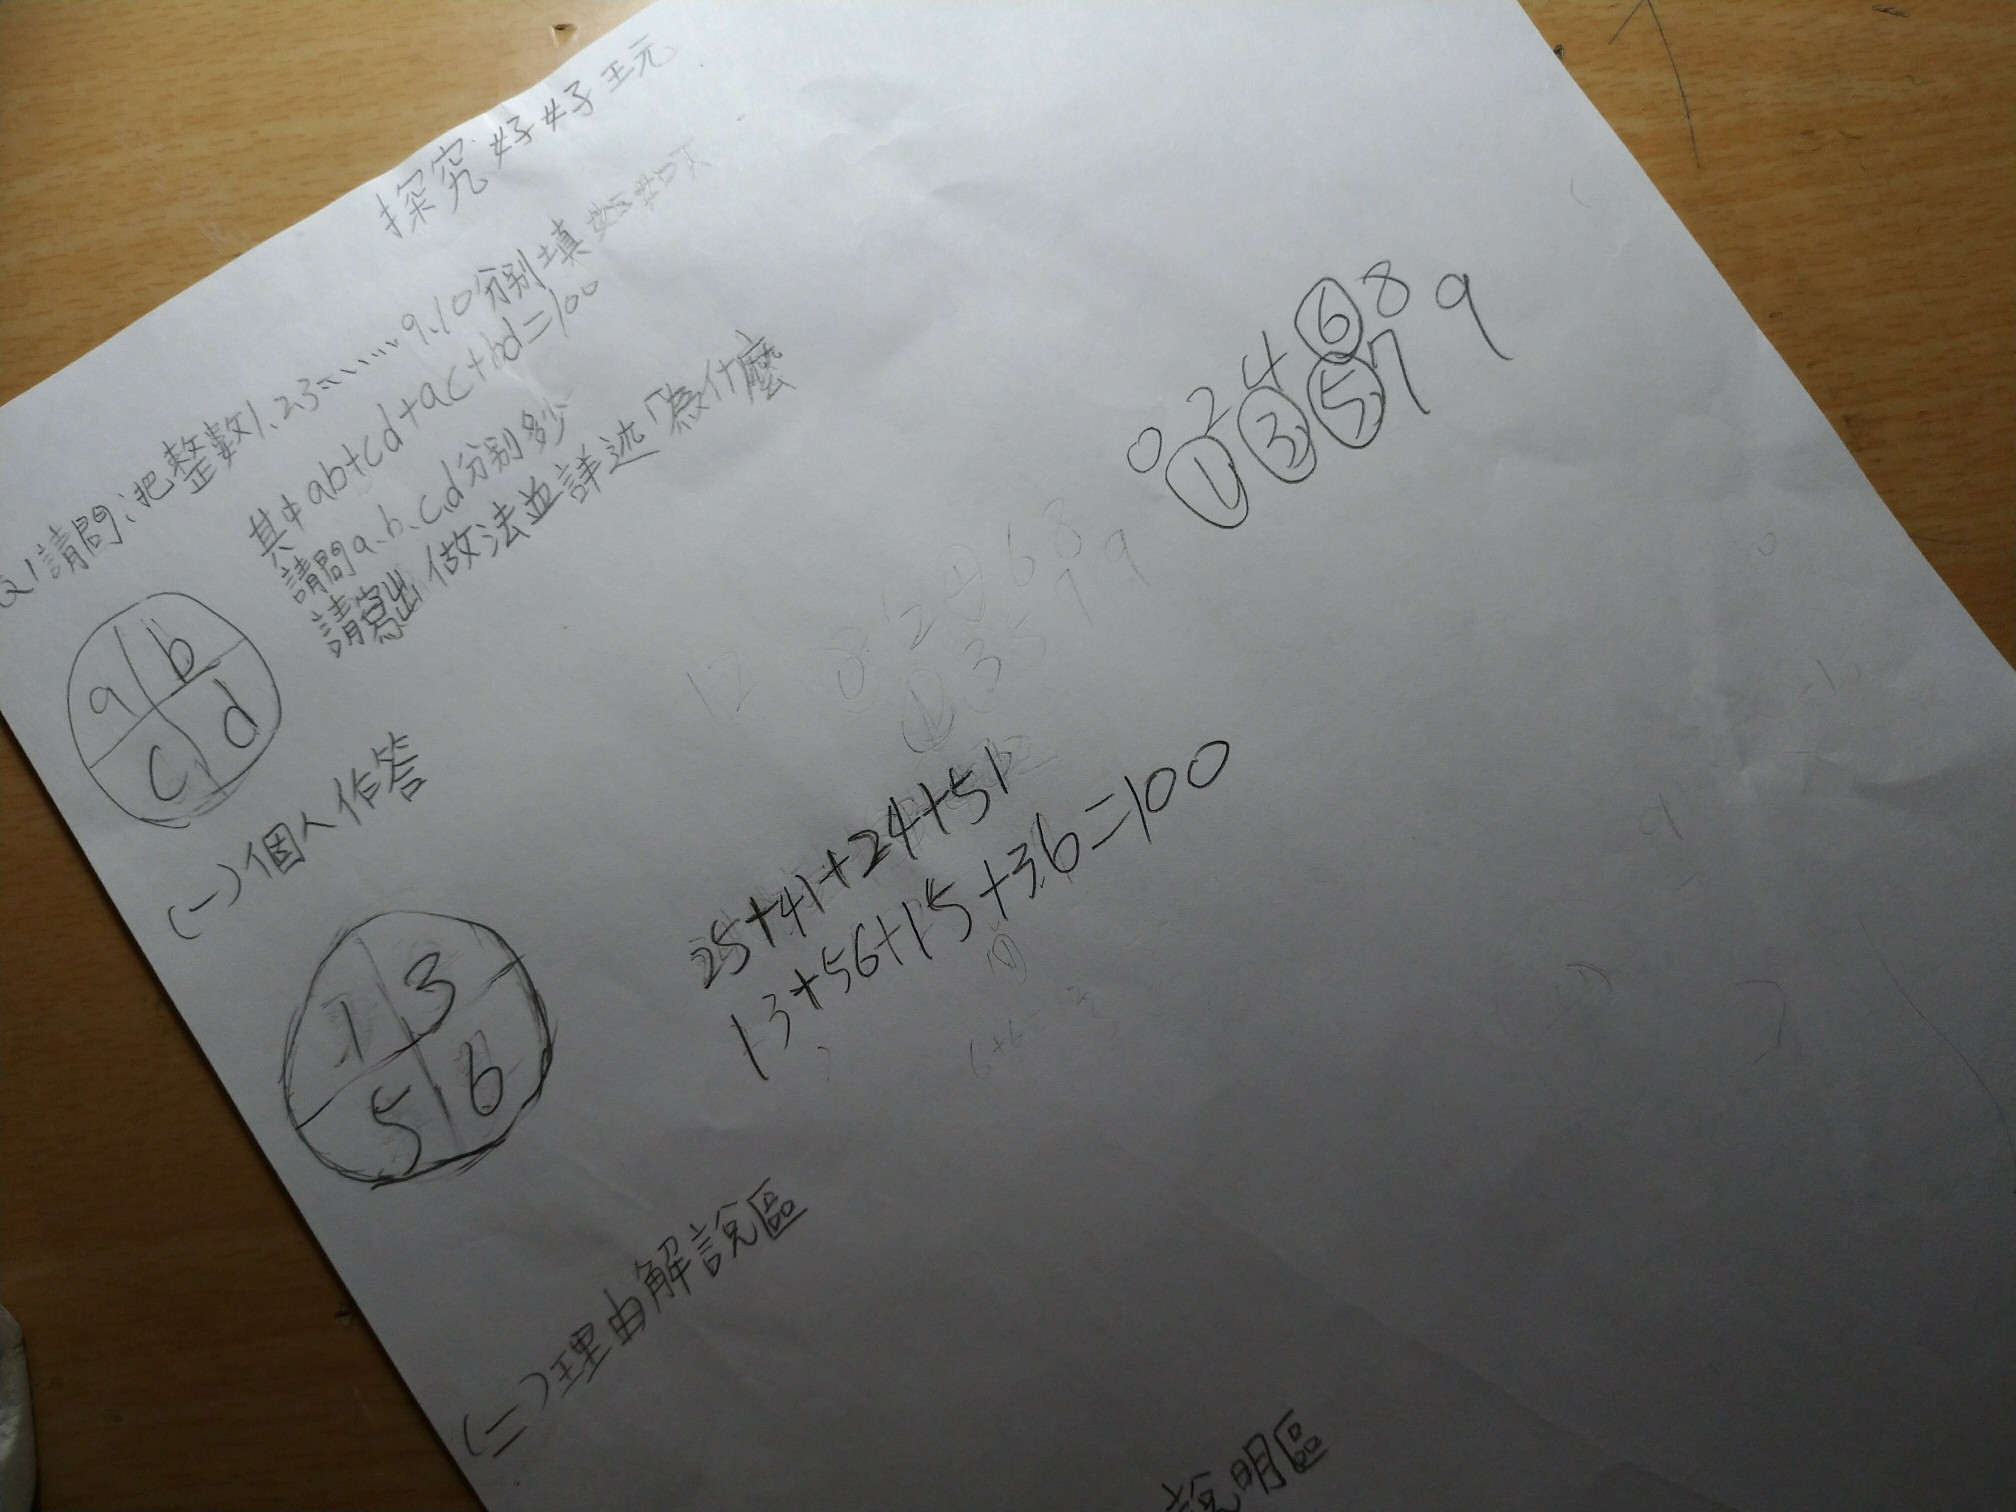 探究好好玩
Q1請問:把整數1、2、3……9、10分別填
其中ab+cd+ac+bd=100
請問a、b、c、d分別多少
請寫出做法並詳述「為什麼
a b
c d
0 2 4 6 8
1 3 5 7 9
(一)個人作答
12 0 2 4 6 8
1 3 5 7 9
25+41+24+51
13+56+15+36=100
1 3
5 6
(二)理由解說區
說明區